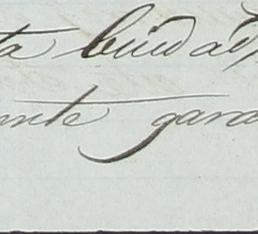 ta ciudad
ente gara